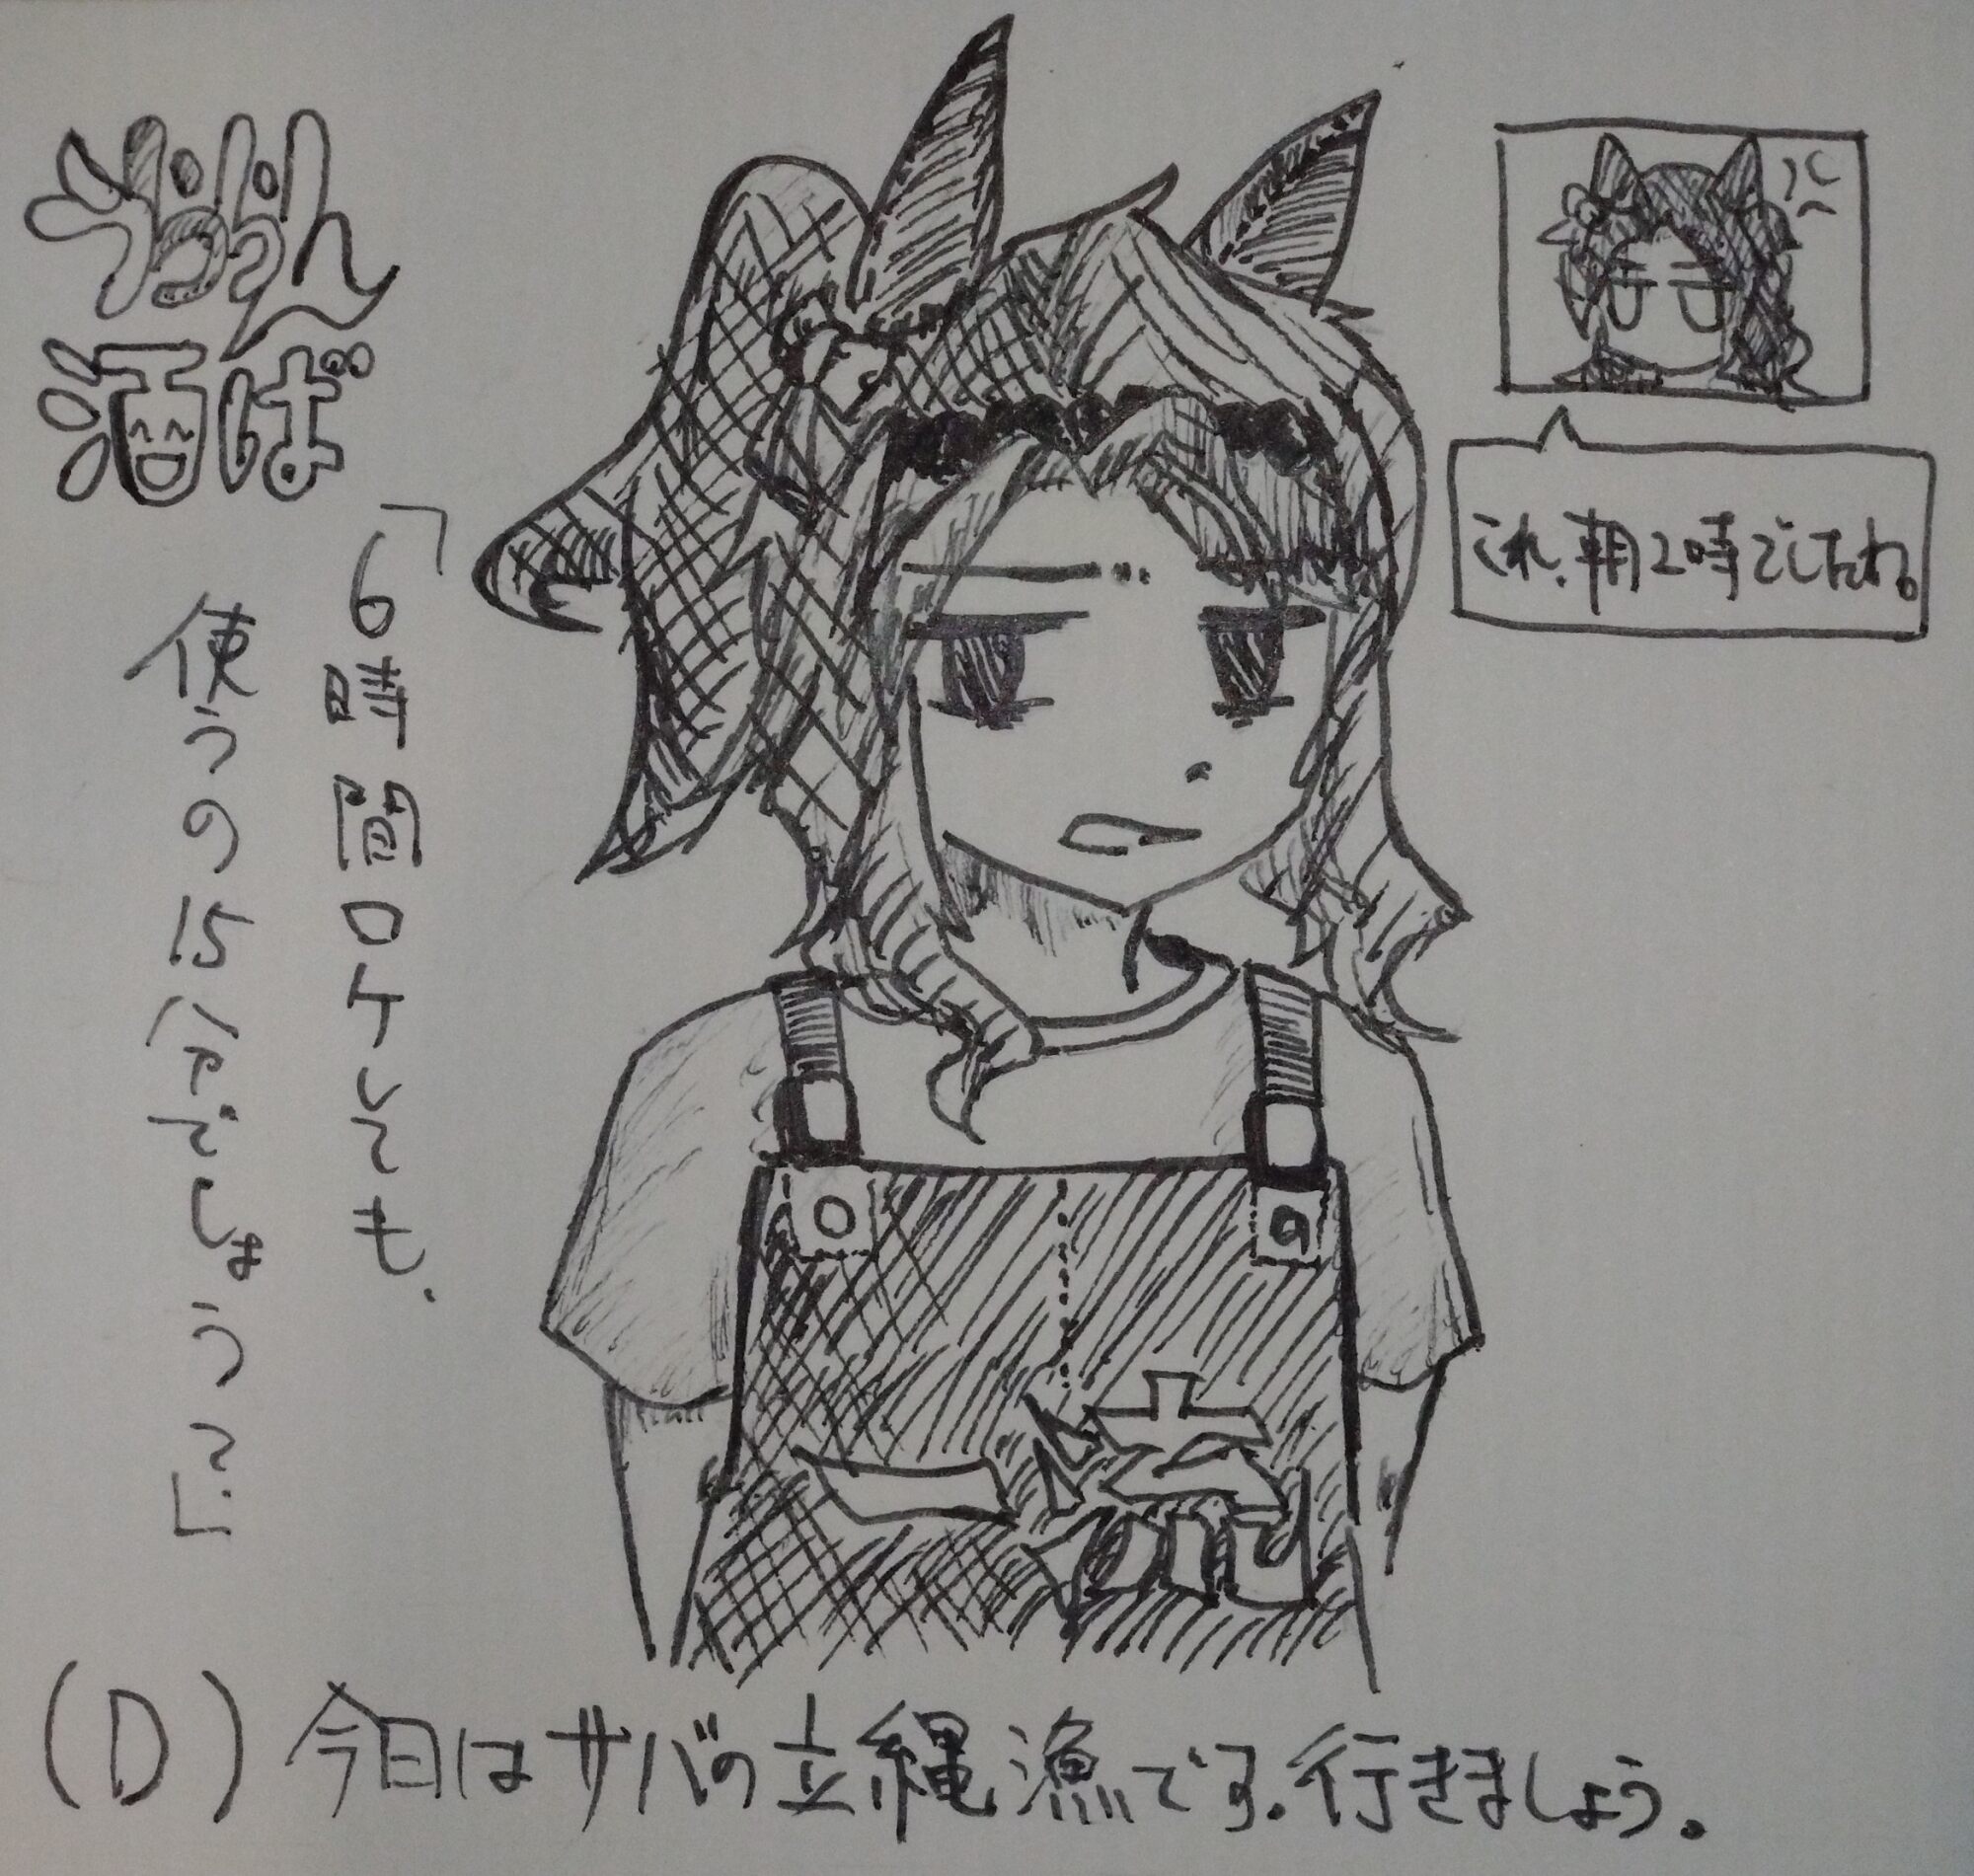 酒ば
「6時間ロケしても、
使うの15分でしょう?」
これ、朝2時でしたね。
一流
(D) 今日はサバの立縄漁です。行きましょう。